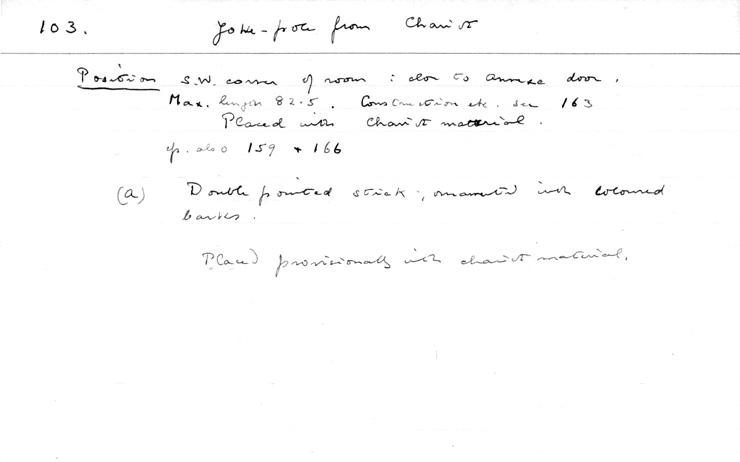 103. Yoke-pole from Chariot
Position S.W. corner of room : close to Annexe door.
Max. length 82.5. Construction etc. see 163
Placed with Chariot material.
cp. also 159 + 166
(a) Double pointed stick, ornamented with coloured
barks.
Placed provisionally with chariot material.